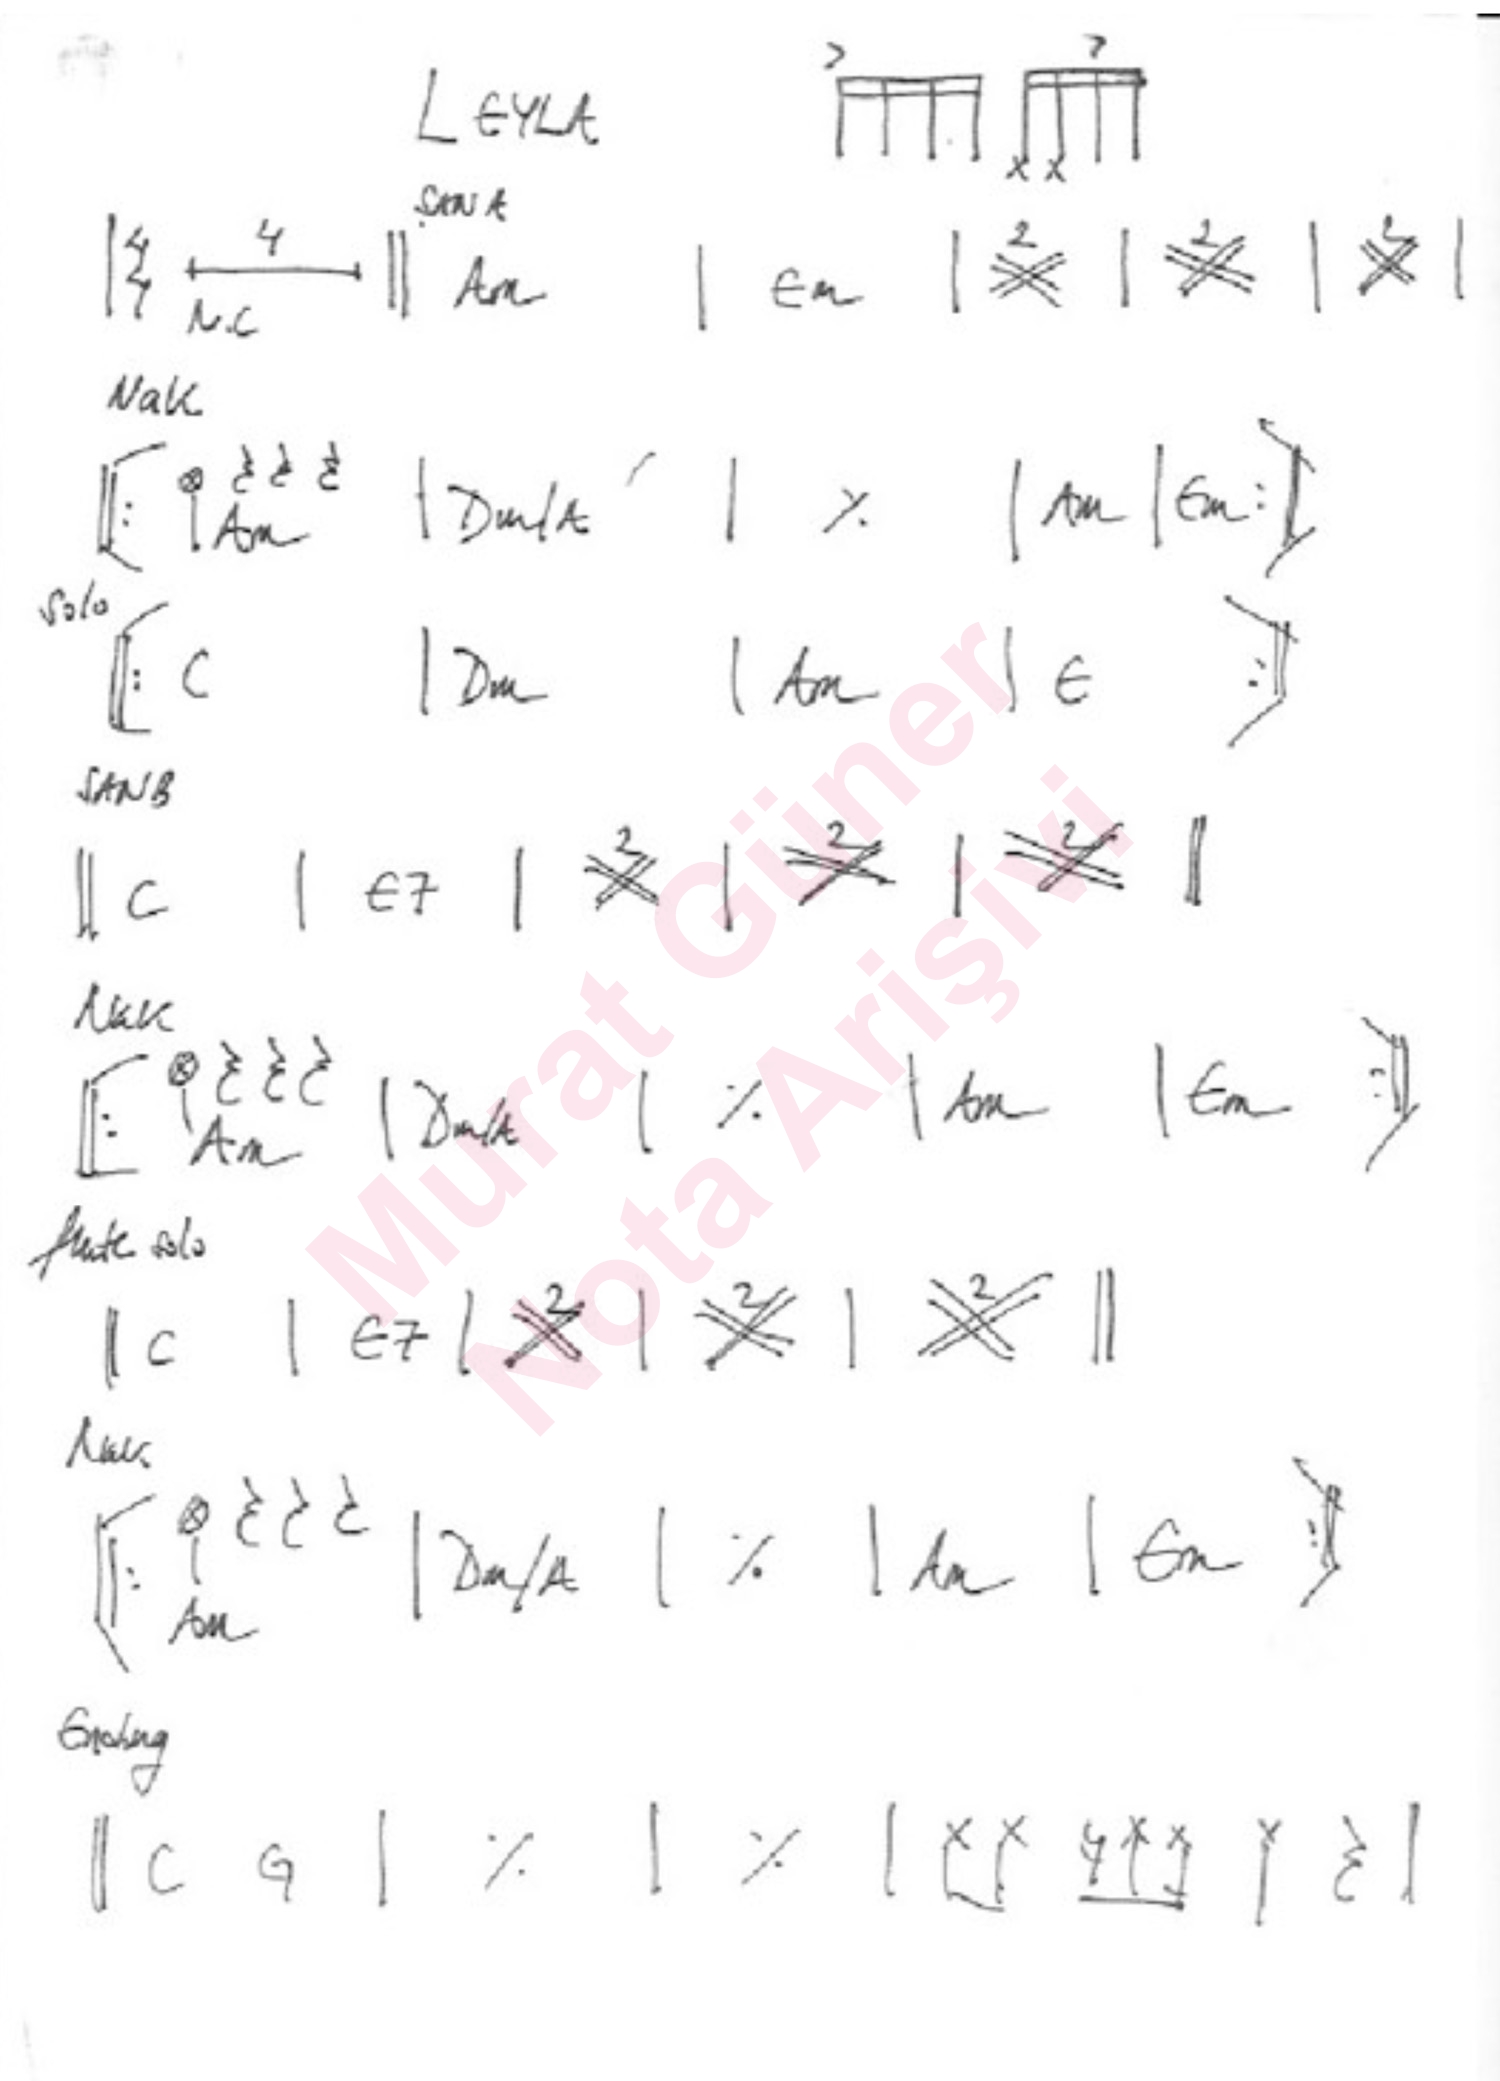 LEYLA
> >
x x
SAN A
| 4/4 4 N.C || Am | Em | 2 | 2 | 2 |
Nak
||: Am | Dm/A | % | Am | Em :||
Solo
||: C | Dm | Am | E :||
SAN B
|| C | E7 | 2 | 2 | 2 ||
Nak
||: Am | Dm/A | % | Am | Em :||
flute solo
|| C | E7 | 2 | 2 | 2 ||
Nak
||: Am | Dm/A | % | Am | Em :||
Ending
|| C G | % | % | x x x x x |
Murat Güner
Nota Arişivi